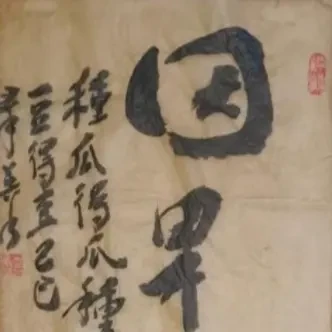 因果
種瓜得瓜種
豆得豆己巳